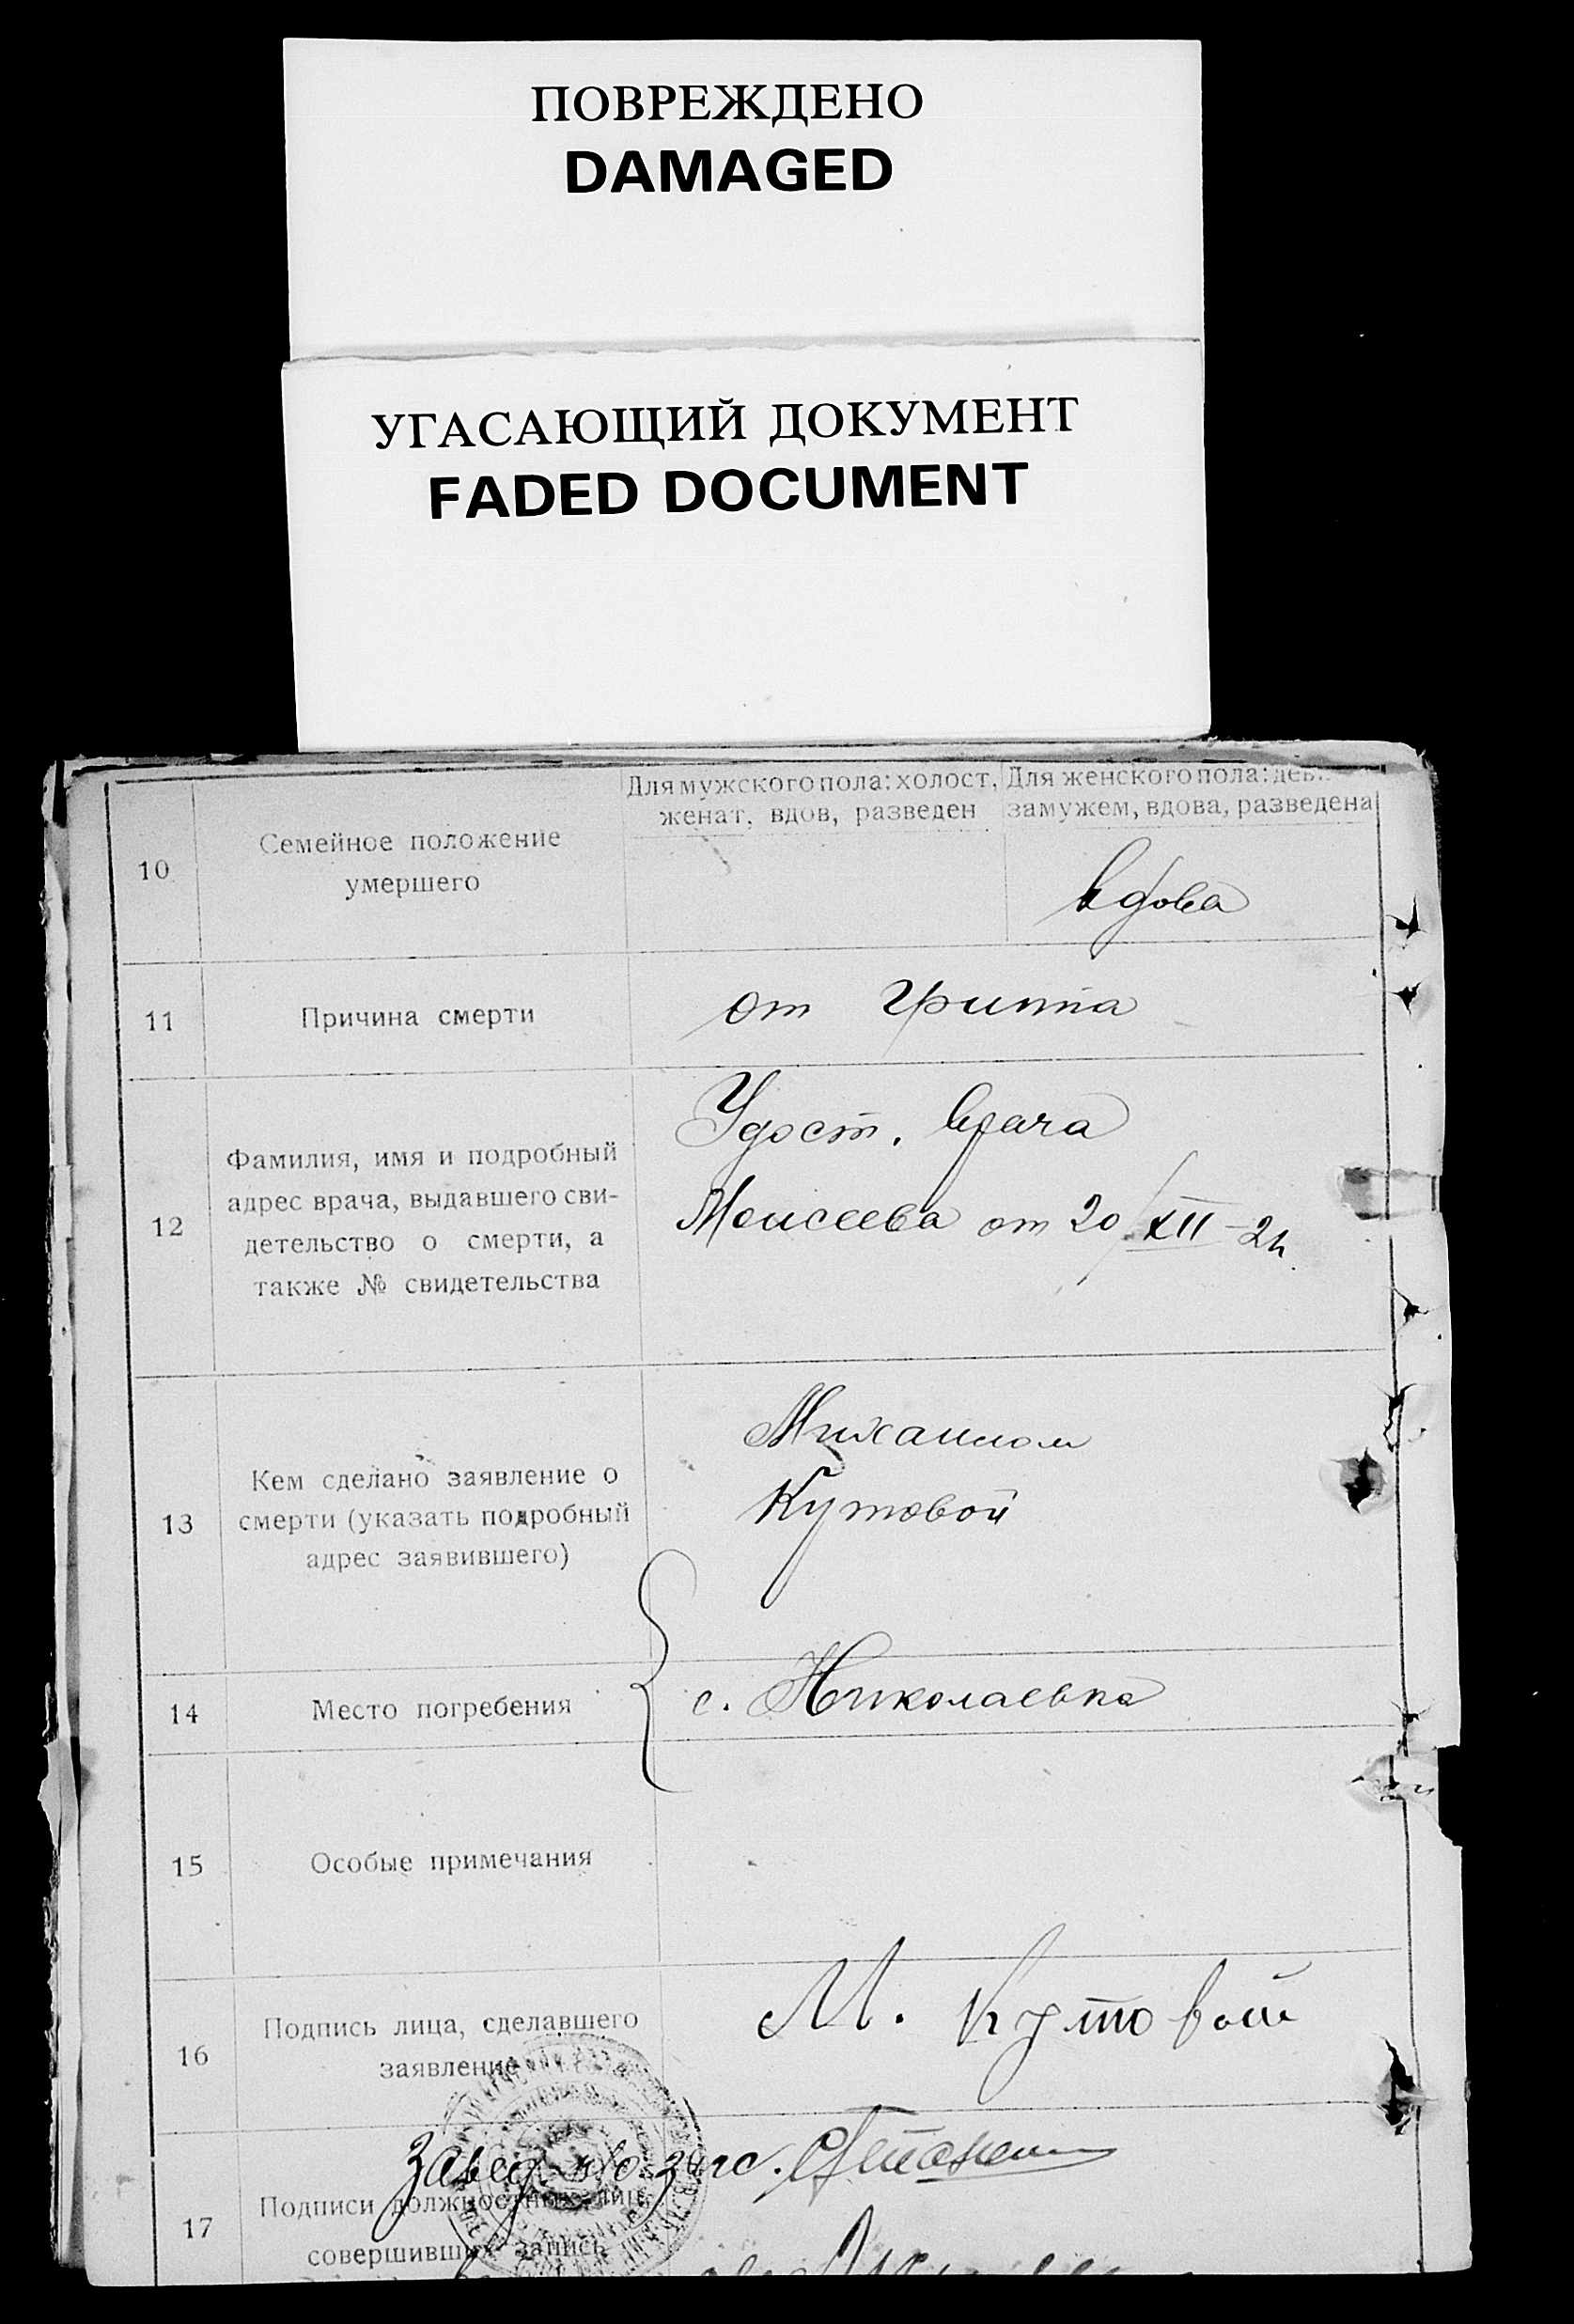 ПОВРЕЖДЕНО
DAMAGED
УГАСАЮЩИЙ ДОКУМЕНТ
FADED DOCUMENT
10
Семейное положение
умершего
Для мужского пола: холост,
женат, вдов, разведен
Для женского пола:
замужем, вдова, разведена
вдова
11
Причина смерти
от гриппа
12
Фамилия, имя и подробный
адрес врача, выдавшего сви-
детельство о смерти, а
также № свидетельства
Удост. врача
Моисеева от 20/XII-
13
Кем сделано заявление о
смерти (указать подробный
адрес заявившего)
Михаилом
Кутовой
14
Место погребения
с. Николаевка
15
Особые примечания
16
Подпись лица, сделавшего
заявление
М. Кутовой
Завед. загс.
17
Подписи должностных лиц,
совершивших запись